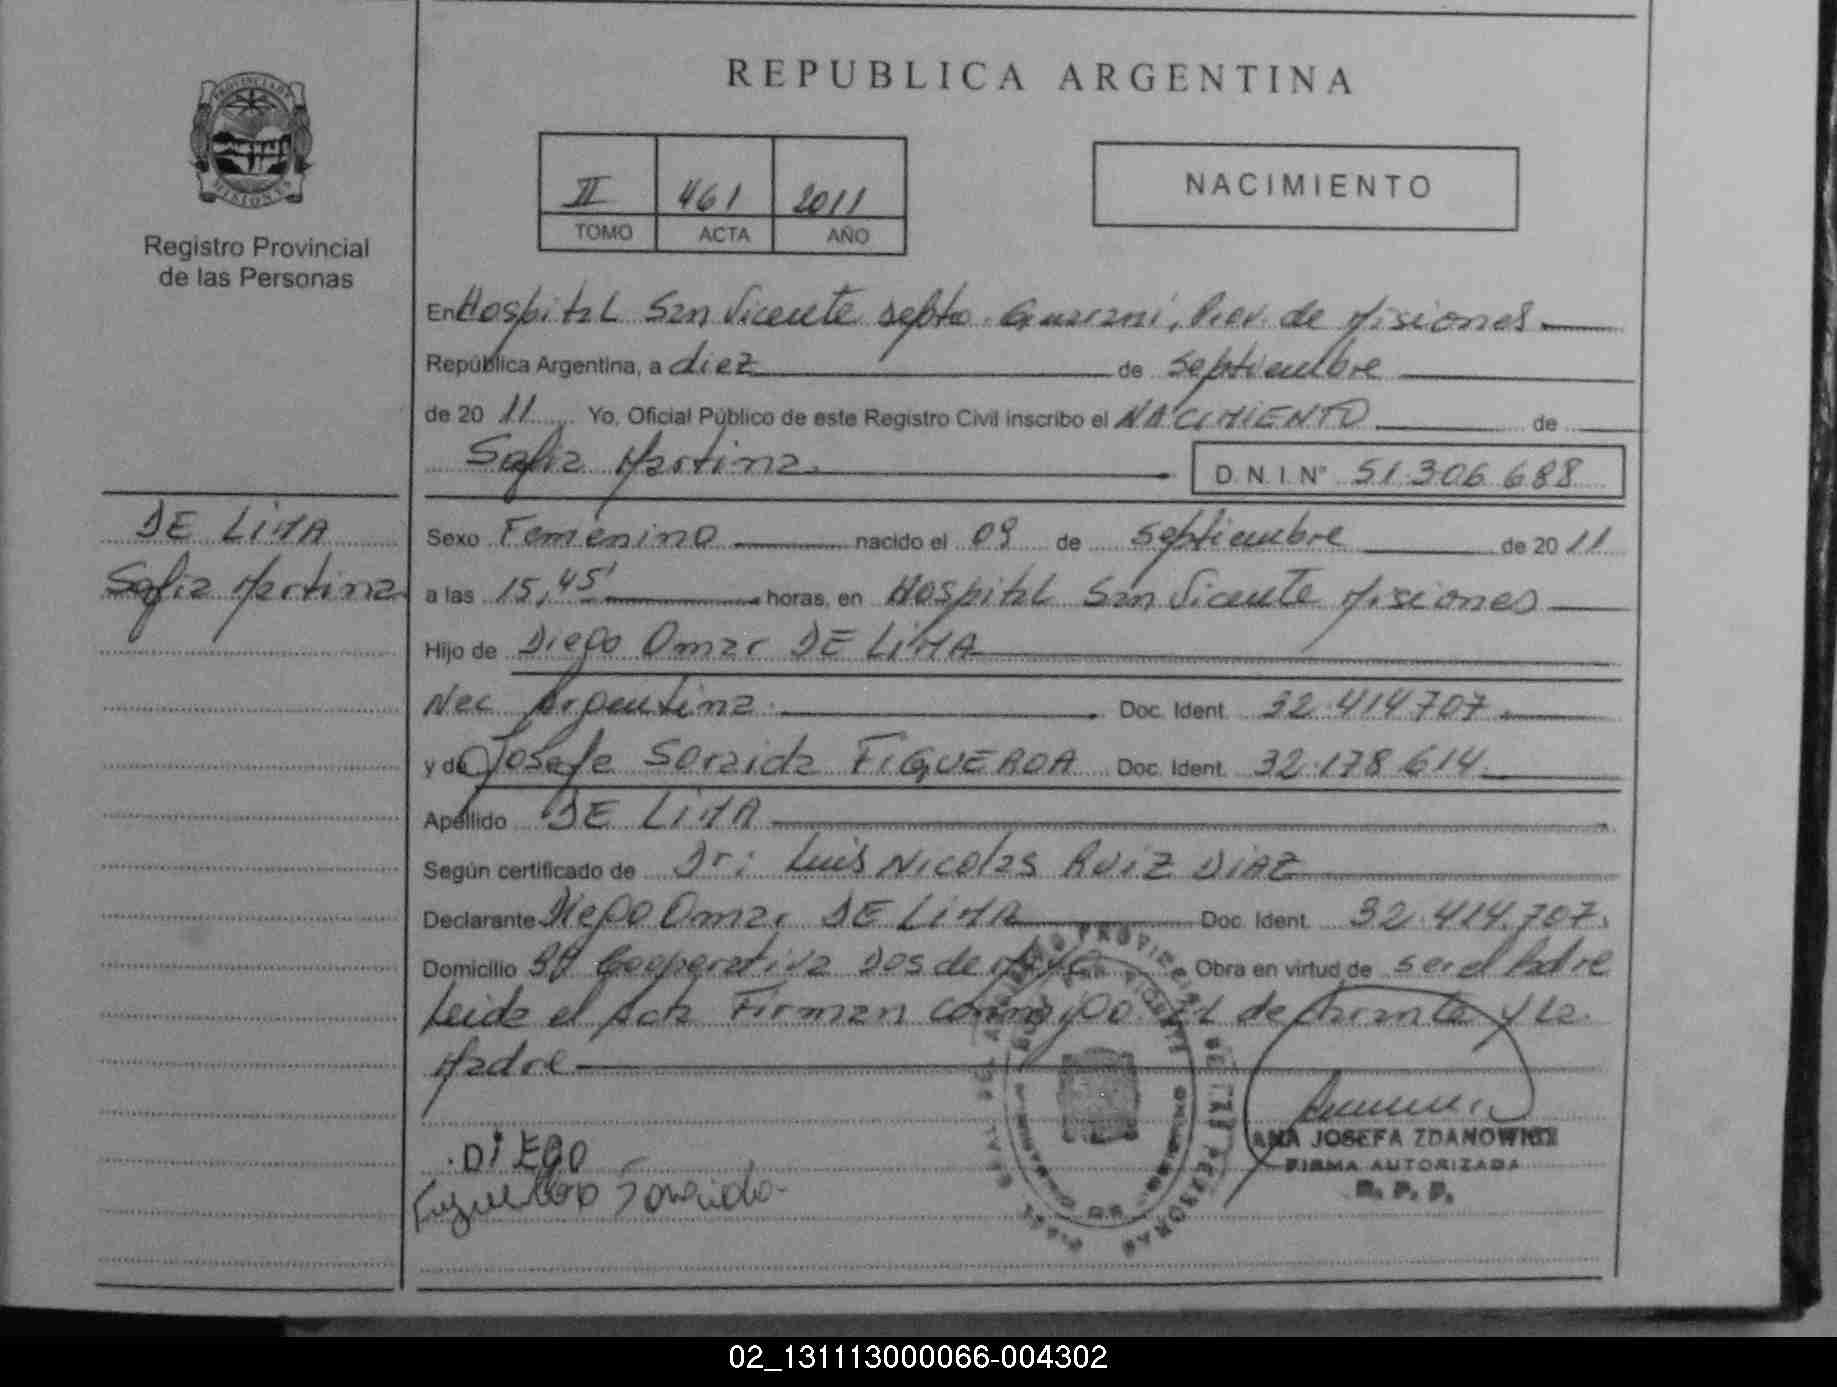 REPUBLICA ARGENTINA
PROVINCIA DE MISIONES
Registro Provincial
de las Personas
II 461 2011
TOMO ACTA AÑO
NACIMIENTO
En Hospital San Vicente Depto. Guarani, Prov. de Misiones
República Argentina, a diez de Septiembre
de 20 11 Yo, Oficial Público de este Registro Civil inscribo el NACIMIENTO de
Sofia Martina D.N.I. Nº 51.306.688
DE LIMA
Sofia Martina
Sexo Femenino nacido el 09 de Septiembre de 20 11
a las 15,45' horas, en Hospital San Vicente Misiones
Hijo de Diego Omar DE LIMA
Nac. Argentina Doc. Ident. 32.414.707
y de Josefa Soraida FIGUEROA Doc. Ident. 32.178.614
Apellido DE LIMA
Según certificado de Dr: Luis Nicolas RUIZ DIAZ
Declarante Diego Omar DE LIMA Doc. Ident. 32.414.707.
Domicilio Bº Cooperativa Dos de Mayo Obra en virtud de ser el Padre
Leida el Acta Firman conmigo El declarante y la
Madre
DiEGO
Figueroa Soraida
ANA JOSEFA ZDANOWICZ
FIRMA AUTORIZADA
R. P. P.
02_131113000066-004302